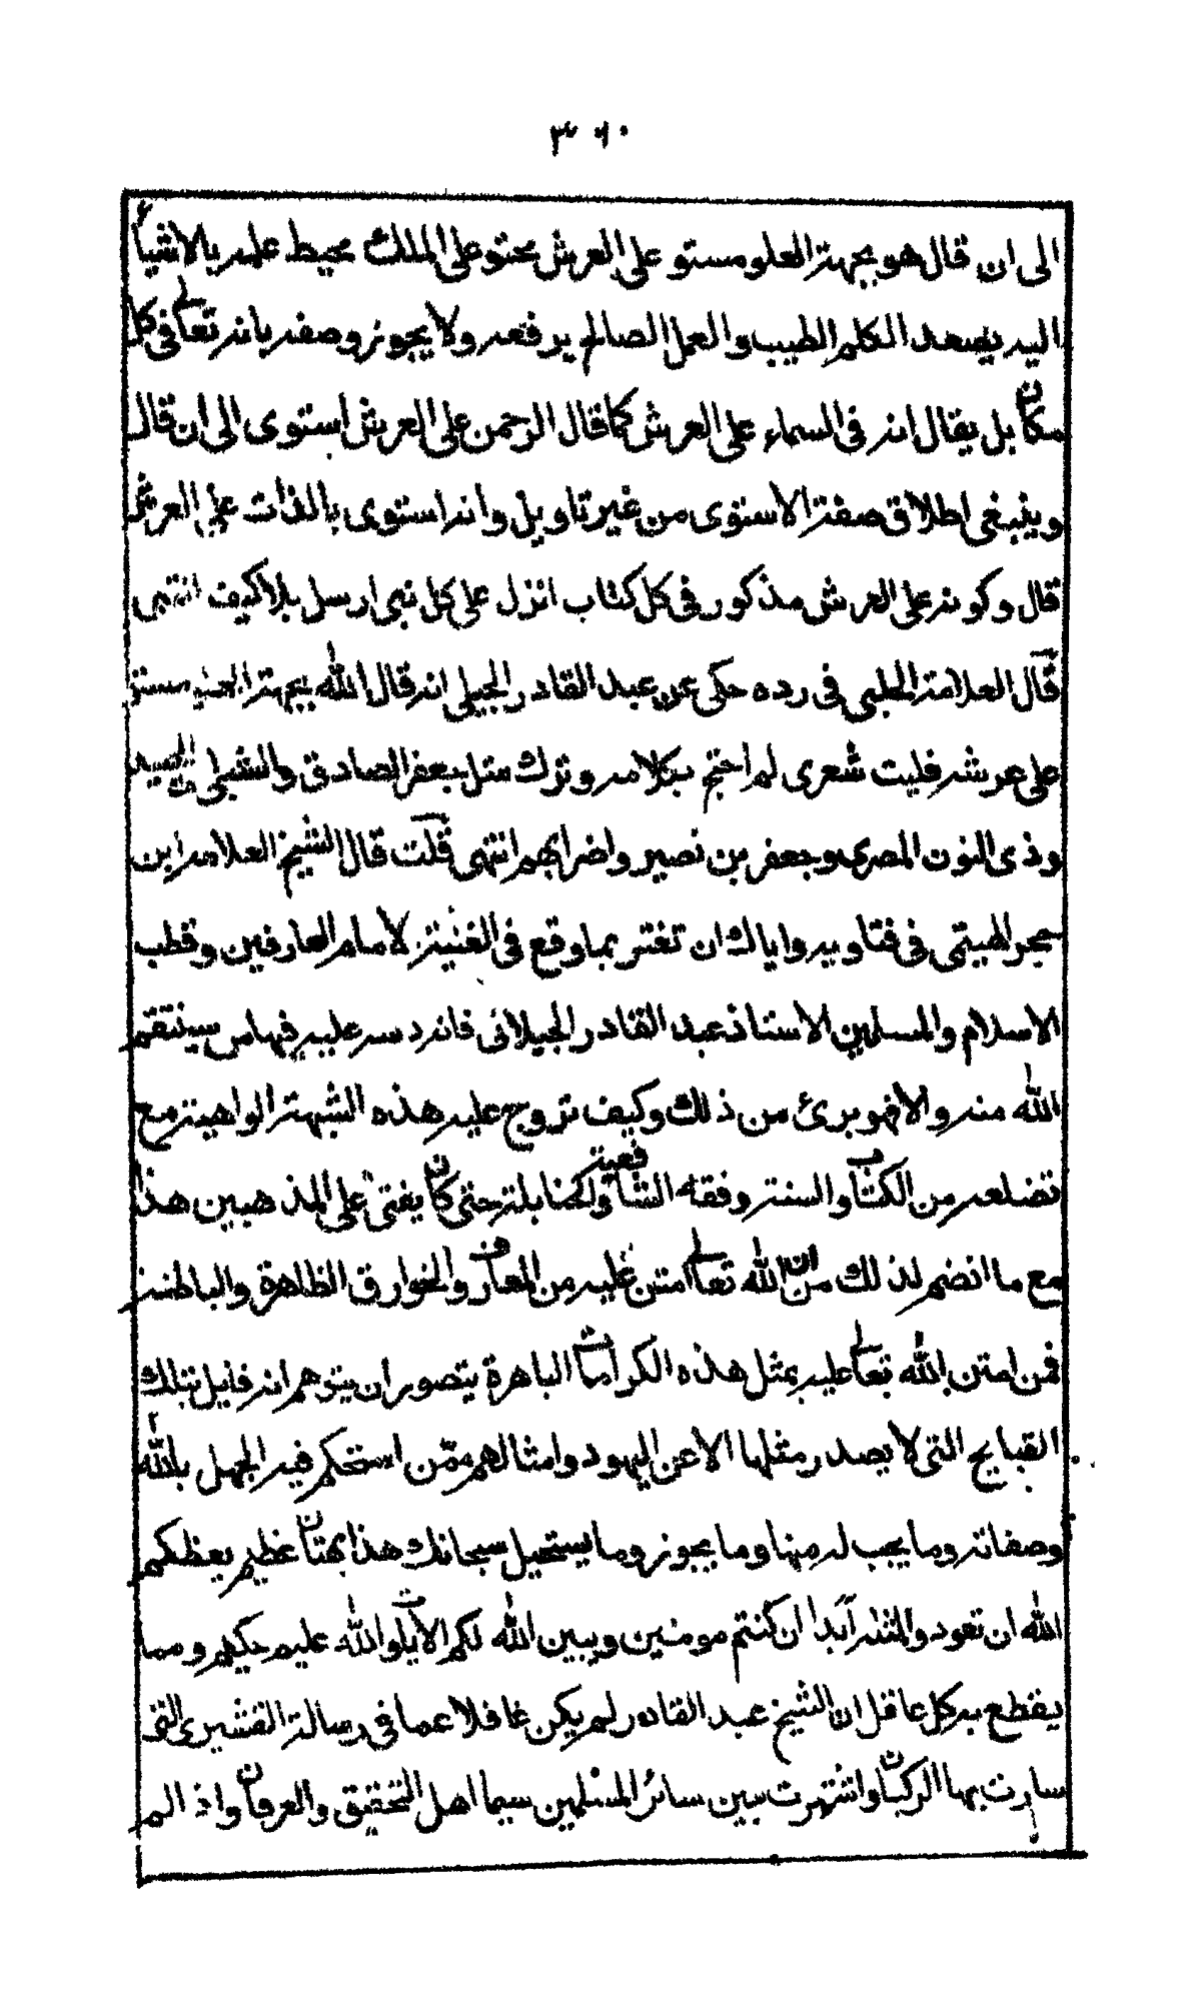 ٣٦٠
الى ان قال هو بجهة العلو مستو على العرش محتو على الملك محيط علمه بالاشياء
اليه يصعد الكلم الطيب والعمل الصالح يرفعه ولا يجوز وصفه بانه تعالى فى كل
مكان بل يقال انه فى السماء على العرش كما قال الرحمن على العرش استوى الى ان قال
وينبغى اطلاق صفة الاستوى من غير تاويل وانه استوى بالذات على العرش
قال وكونه على العرش مذكور فى كل كتاب انزل على كل نبى ارسل بلا كيف انتهى
قال العلامة الحلبى فى رده حكى عن عبد القادر الجيلى انه قال الله بجهة العلو مستو
على عرشه فليت شعرى لم احتج بكلامه وترك مثل جعفر الصادق والشبلى والجنيد
وذى النون المصرى وجعفر بن نصير واضرابهم انتهى قلت قال الشيخ العلامه ابن
حجر الهيتمى فى فتاويه واياك ان تغتر بما وقع فى الغنية لامام العارفين وقطب
الاسلام والمسلمين الاستاذ عبد القادر الجيلانى فانه دسه عليه فيها من سينتقم
الله منه والا فهو برئ من ذلك وكيف تروج عليه هذه الشبهة الواهية مع
تضلعه من الكتاب والسنة وفقه الشافعية والحنابلة حتى كان يفتى على المذهبين هذا
مع ما انضم لذلك من ان الله تعالى امتن عليه من المعارف والخوارق الظاهرة والباطنة
فمن امتن الله تعالى عليه بمثل هذه الكرامات الباهرة يتصور ان يتوهم انه قايل بتلك
القبايح التى لا يصدر مثلها الا عن اليهود وامثالهم ممن استحكم فيه الجهل بالله
وصفاته وما يجب له منها وما يجوز وما يستحيل سبحانك هذا بهتان عظيم يعظكم
الله ان تعودوا لمثله ابدا ان كنتم مومنين ويبين الله لكم الايات والله عليم حكيم ومما
يقطع به كل عاقل ان الشيخ عبد القادر لم يكن غافلا عما فى رسالة القشيرى التى
سارت بها الركبان واشتهرت بين سائر المسلمين سيما اهل التحقيق والعرفان واذا لم